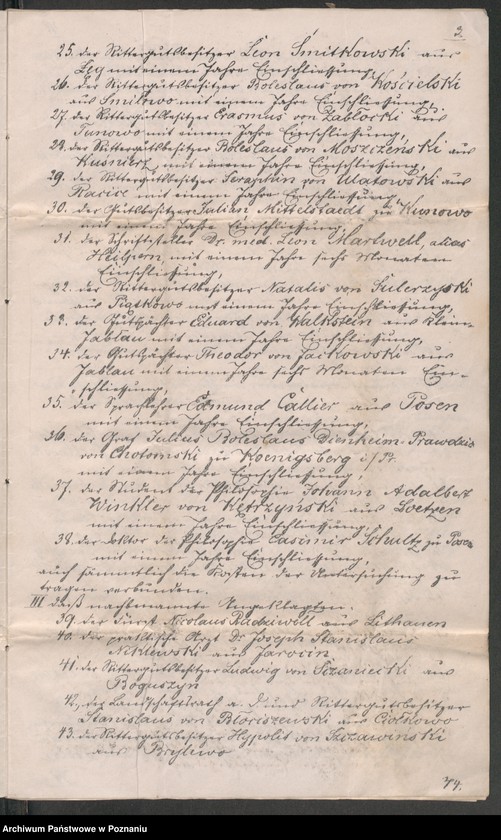 2
25. der Rittergutsbesitzer Leon Smitkowski aus
Leg mit einem Jahre Einschließung,
26. der Rittergutsbesitzer Boleslaus von Kościelski
aus Smilowo mit einem Jahre Einschließung,
27. der Rittergutsbesitzer Erasmus von Zabłocki aus
Tunowo mit einem Jahre Einschließung,
28. der Rittergutsbesitzer Boleslaus von Moszczenski aus
Kusnierz, mit einem Jahre Einschließung,
29. der Rittergutsbesitzer Seraphin von Ulatowski aus
mit einem Jahre Einschließung,
30. der Gutsbesitzer Julian Mittelstaedt zu Kunowo
mit einem Jahre Einschließung,
31. der Schriftsteller Dr. med. Leon Martwell, alias
Heilpern, mit einem Jahre sechs Monaten
Einschließung,
32. der Rittergutsbesitzer Natalis von Sulerzyski
aus Piątkowo mit einem Jahre Einschließung,
33. der Gutspächter Eduard von Kalkstein aus Klein-
Jablau mit einem Jahre Einschließung,
34. der Gutspächter Theodor von Jackowski aus
Jablau mit einem Jahre sechs Monaten Ein-
schließung,
35. der Sprachlehrer Edmund Callier aus Posen
mit einem Jahre Einschließung,
36. der Graf Julius Boleslaus Dienheim-Prawdzic
von Chotomski zu Koenigsberg i/Pr.
mit einem Jahre Einschließung,
37. der Student der Philosophie Johann Adalbert
Winkler von Kętrzyński aus Loetzen
mit einem Jahre Einschließung,
38. der Doktor der Philosophie Casimir Schultz zu Posen
mit einem Jahre Einschließung,
auch sämmtlich die Kosten der Untersuchung zu
tragen verbunden.
III daß nachbenannte Angeklagten:
39. der Fürst Nicolaus Radziwill aus Lithauen
40. der praktische Arzt Dr Joseph Stanislaus
Niklewski aus Jarocin
41. der Rittergutsbesitzer Ludwig von Sczaniecki aus
Boguszyn
42. der Landschaftsrath a. D und Rittergutsbesitzer
Stanislaus von Blociszewski aus Ciołkowo
43. der Rittergutsbesitzer Hypolit von Szczawinski
aus Brylewo
74.
Archiwum Państwowe w Poznaniu